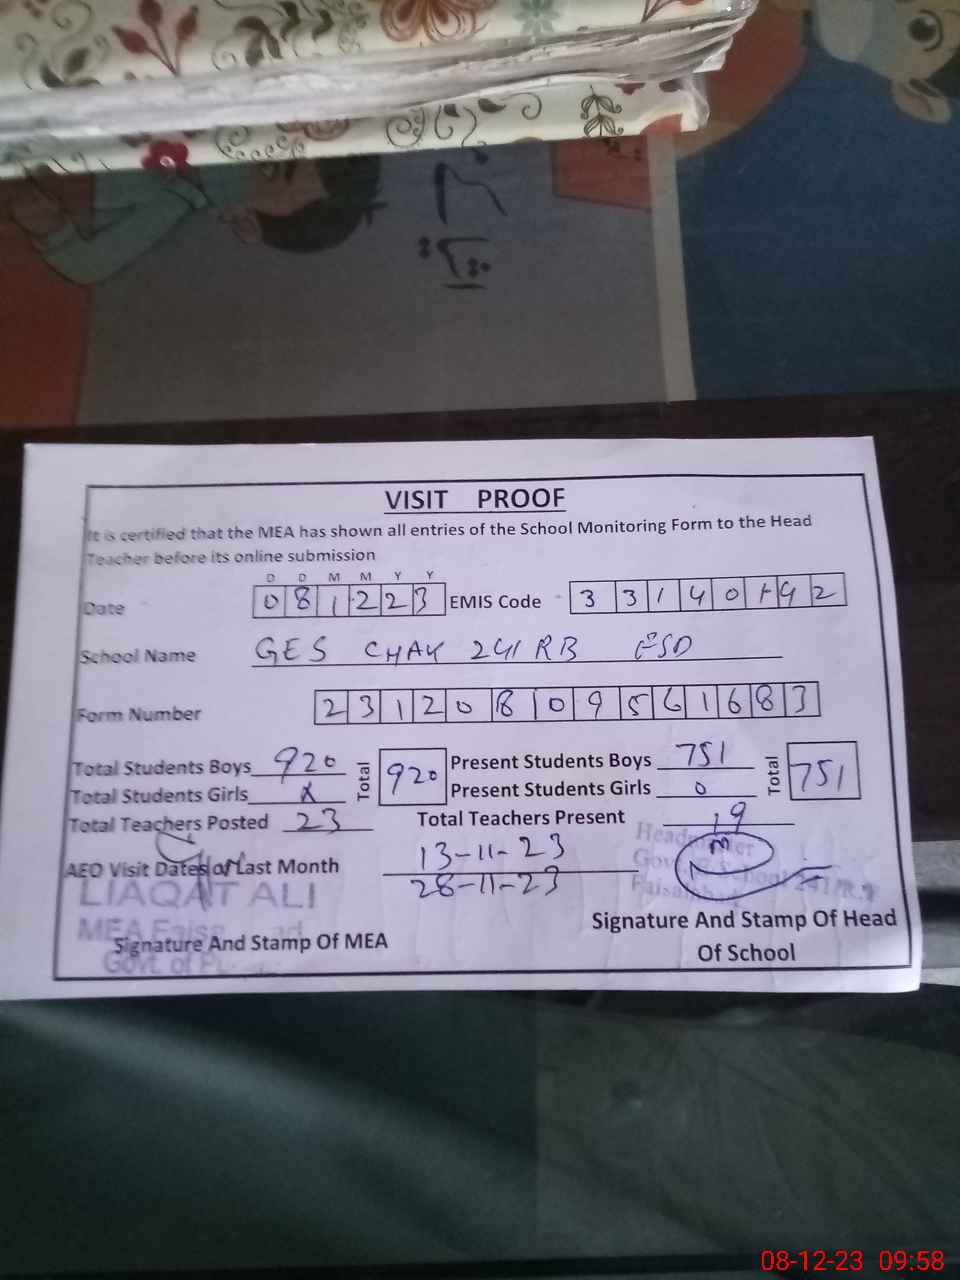 VISIT PROOF
It is certified that the MEA has shown all entries of the School Monitoring Form to the Head
Teacher before its online submission
D D M M Y Y
Date 081223 EMIS Code 33140142
School Name GES CHAK 241 RB FSD
Form Number 23120809561683
Total Students Boys 920 Total 920 Present Students Boys 751 Total 751
Total Students Girls X Present Students Girls 0
Total Teachers Posted 23 Total Teachers Present 19
AEO Visit Dates of Last Month 13-11-23
28-11-23
LIAQAT ALI
MEA
Govt. of
Signature And Stamp Of MEA
Signature And Stamp Of Head
Of School
08-12-23 09:58